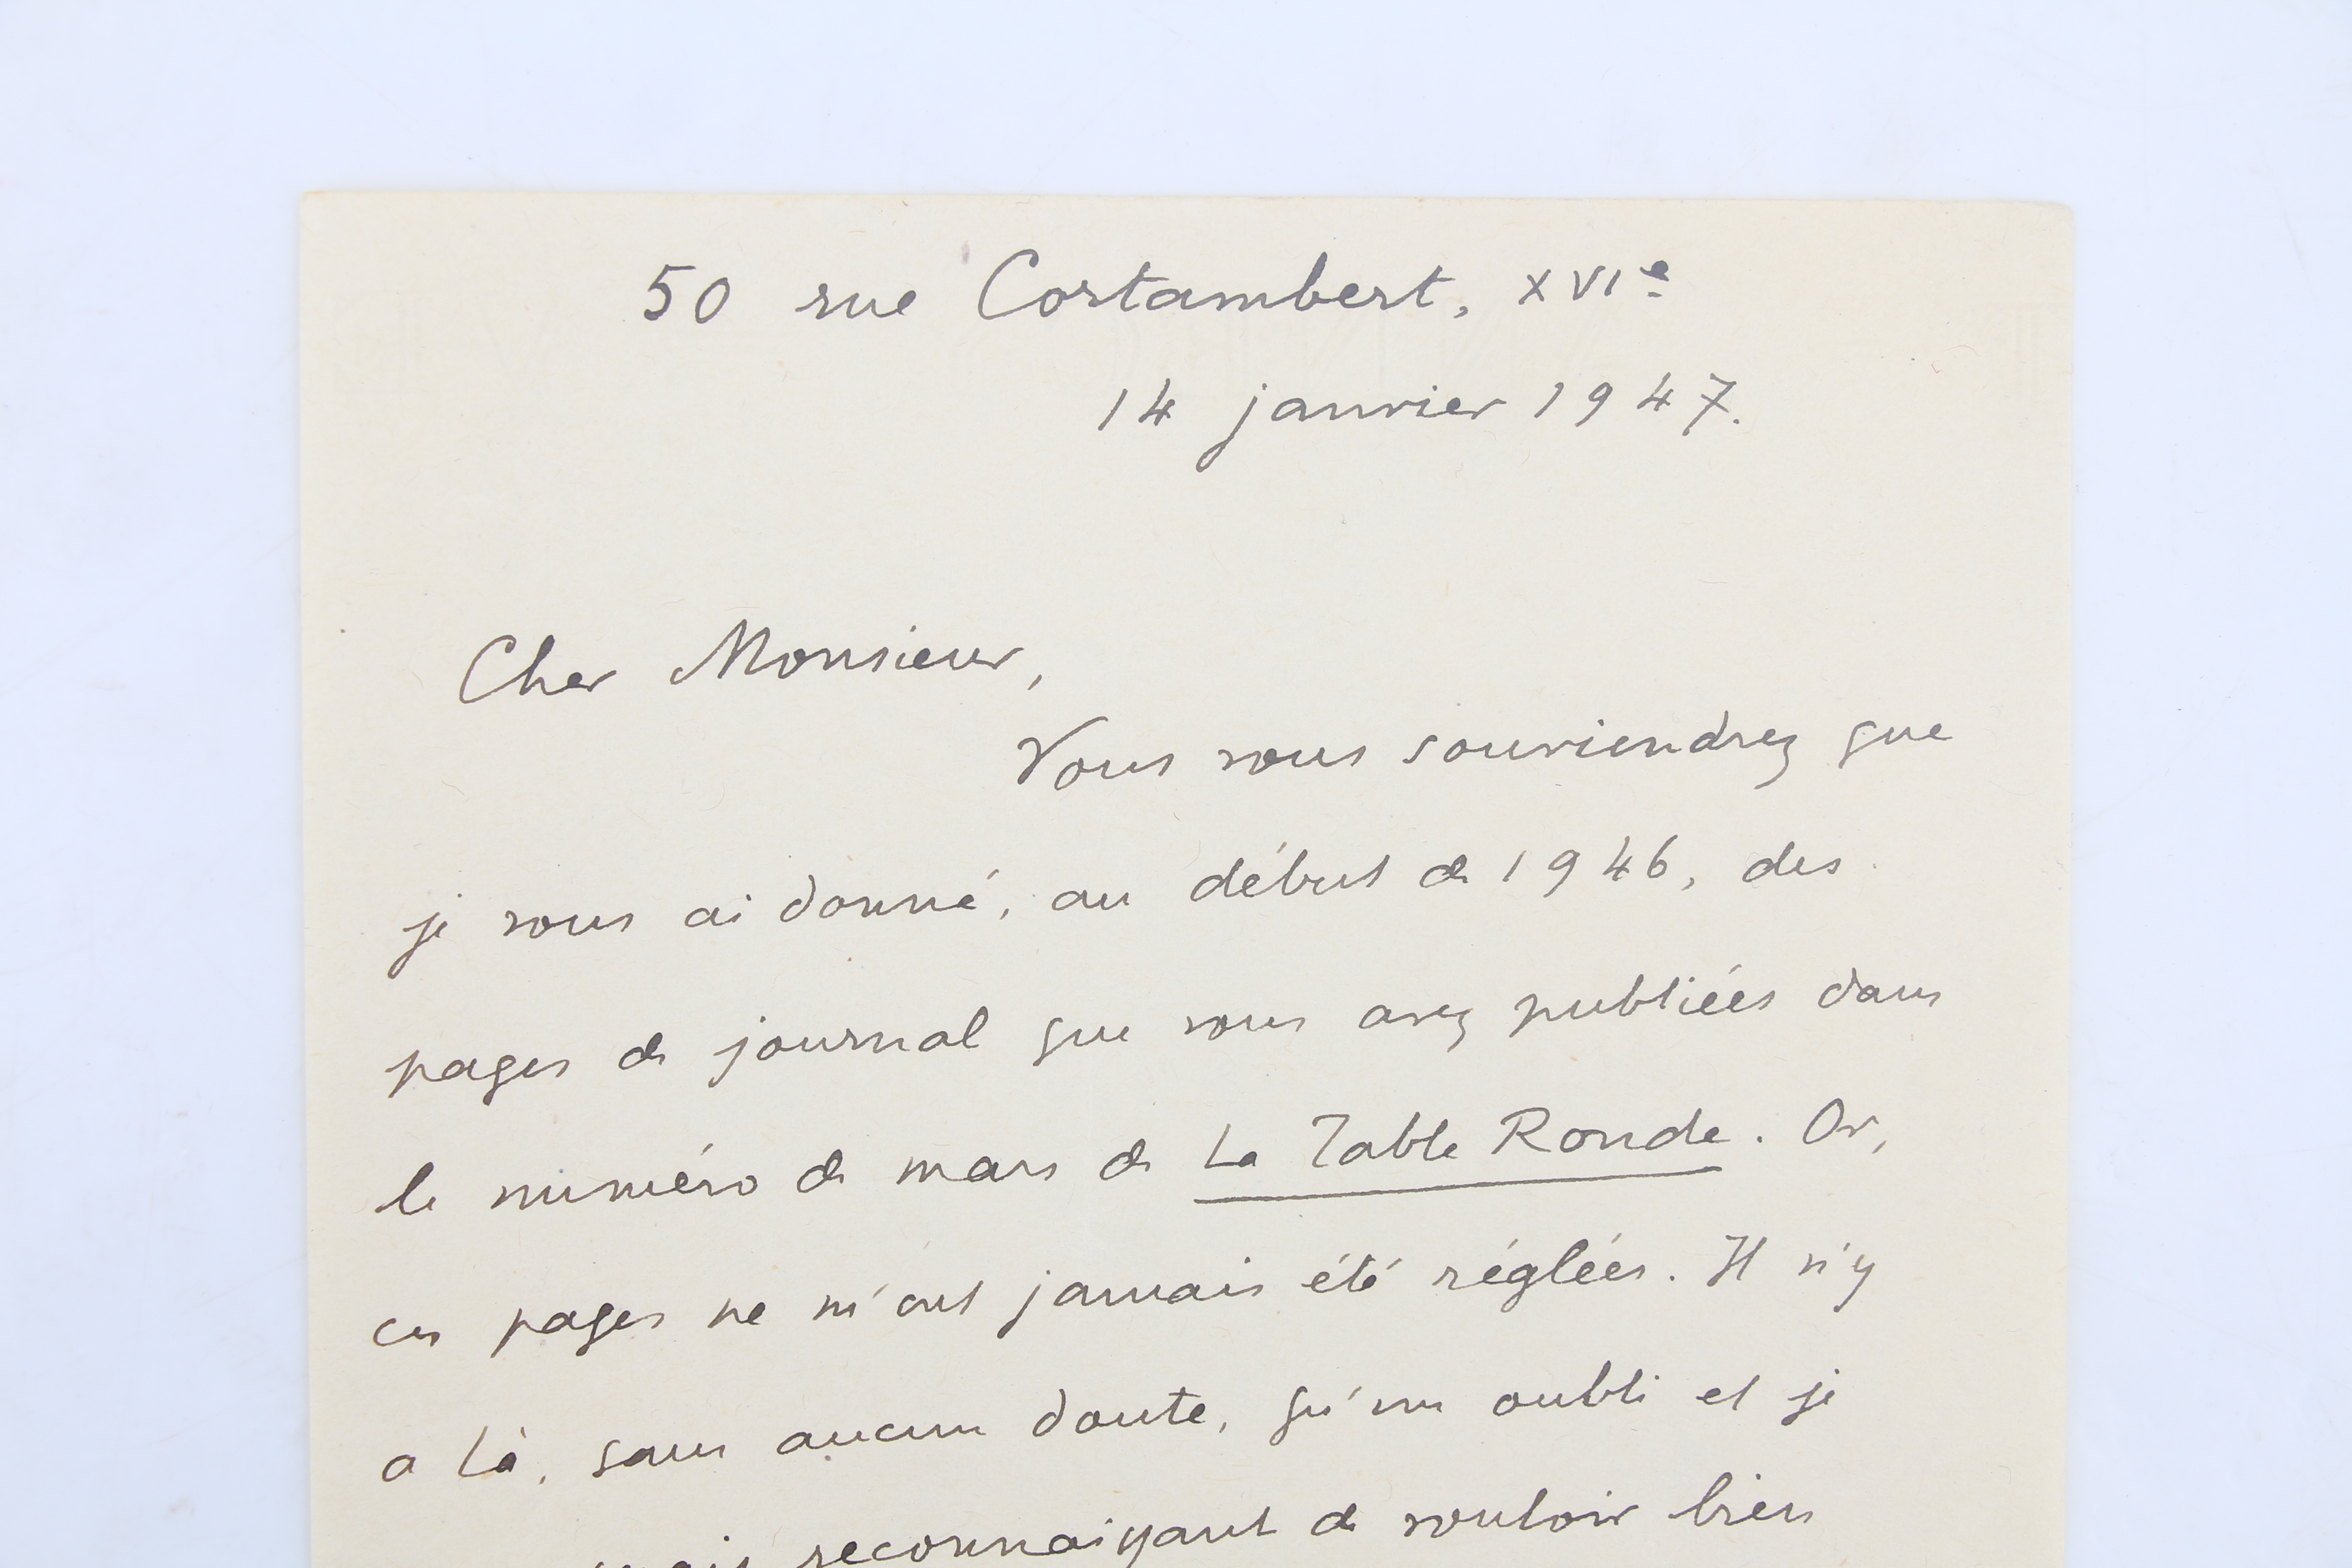 50 rue Cortambert, XVIe
14 janvier 1947.
Cher Monsieur,
Vous vous souviendrez que
je vous ai donné, au début de 1946, des
pages de journal que vous avez publiées dans
le numéro de mars de La Table Ronde. Or,
ces pages ne m'ont jamais été réglées. Il n'y
a là, sans aucun doute, qu'un oubli et je
reconnaissant de vouloir bien